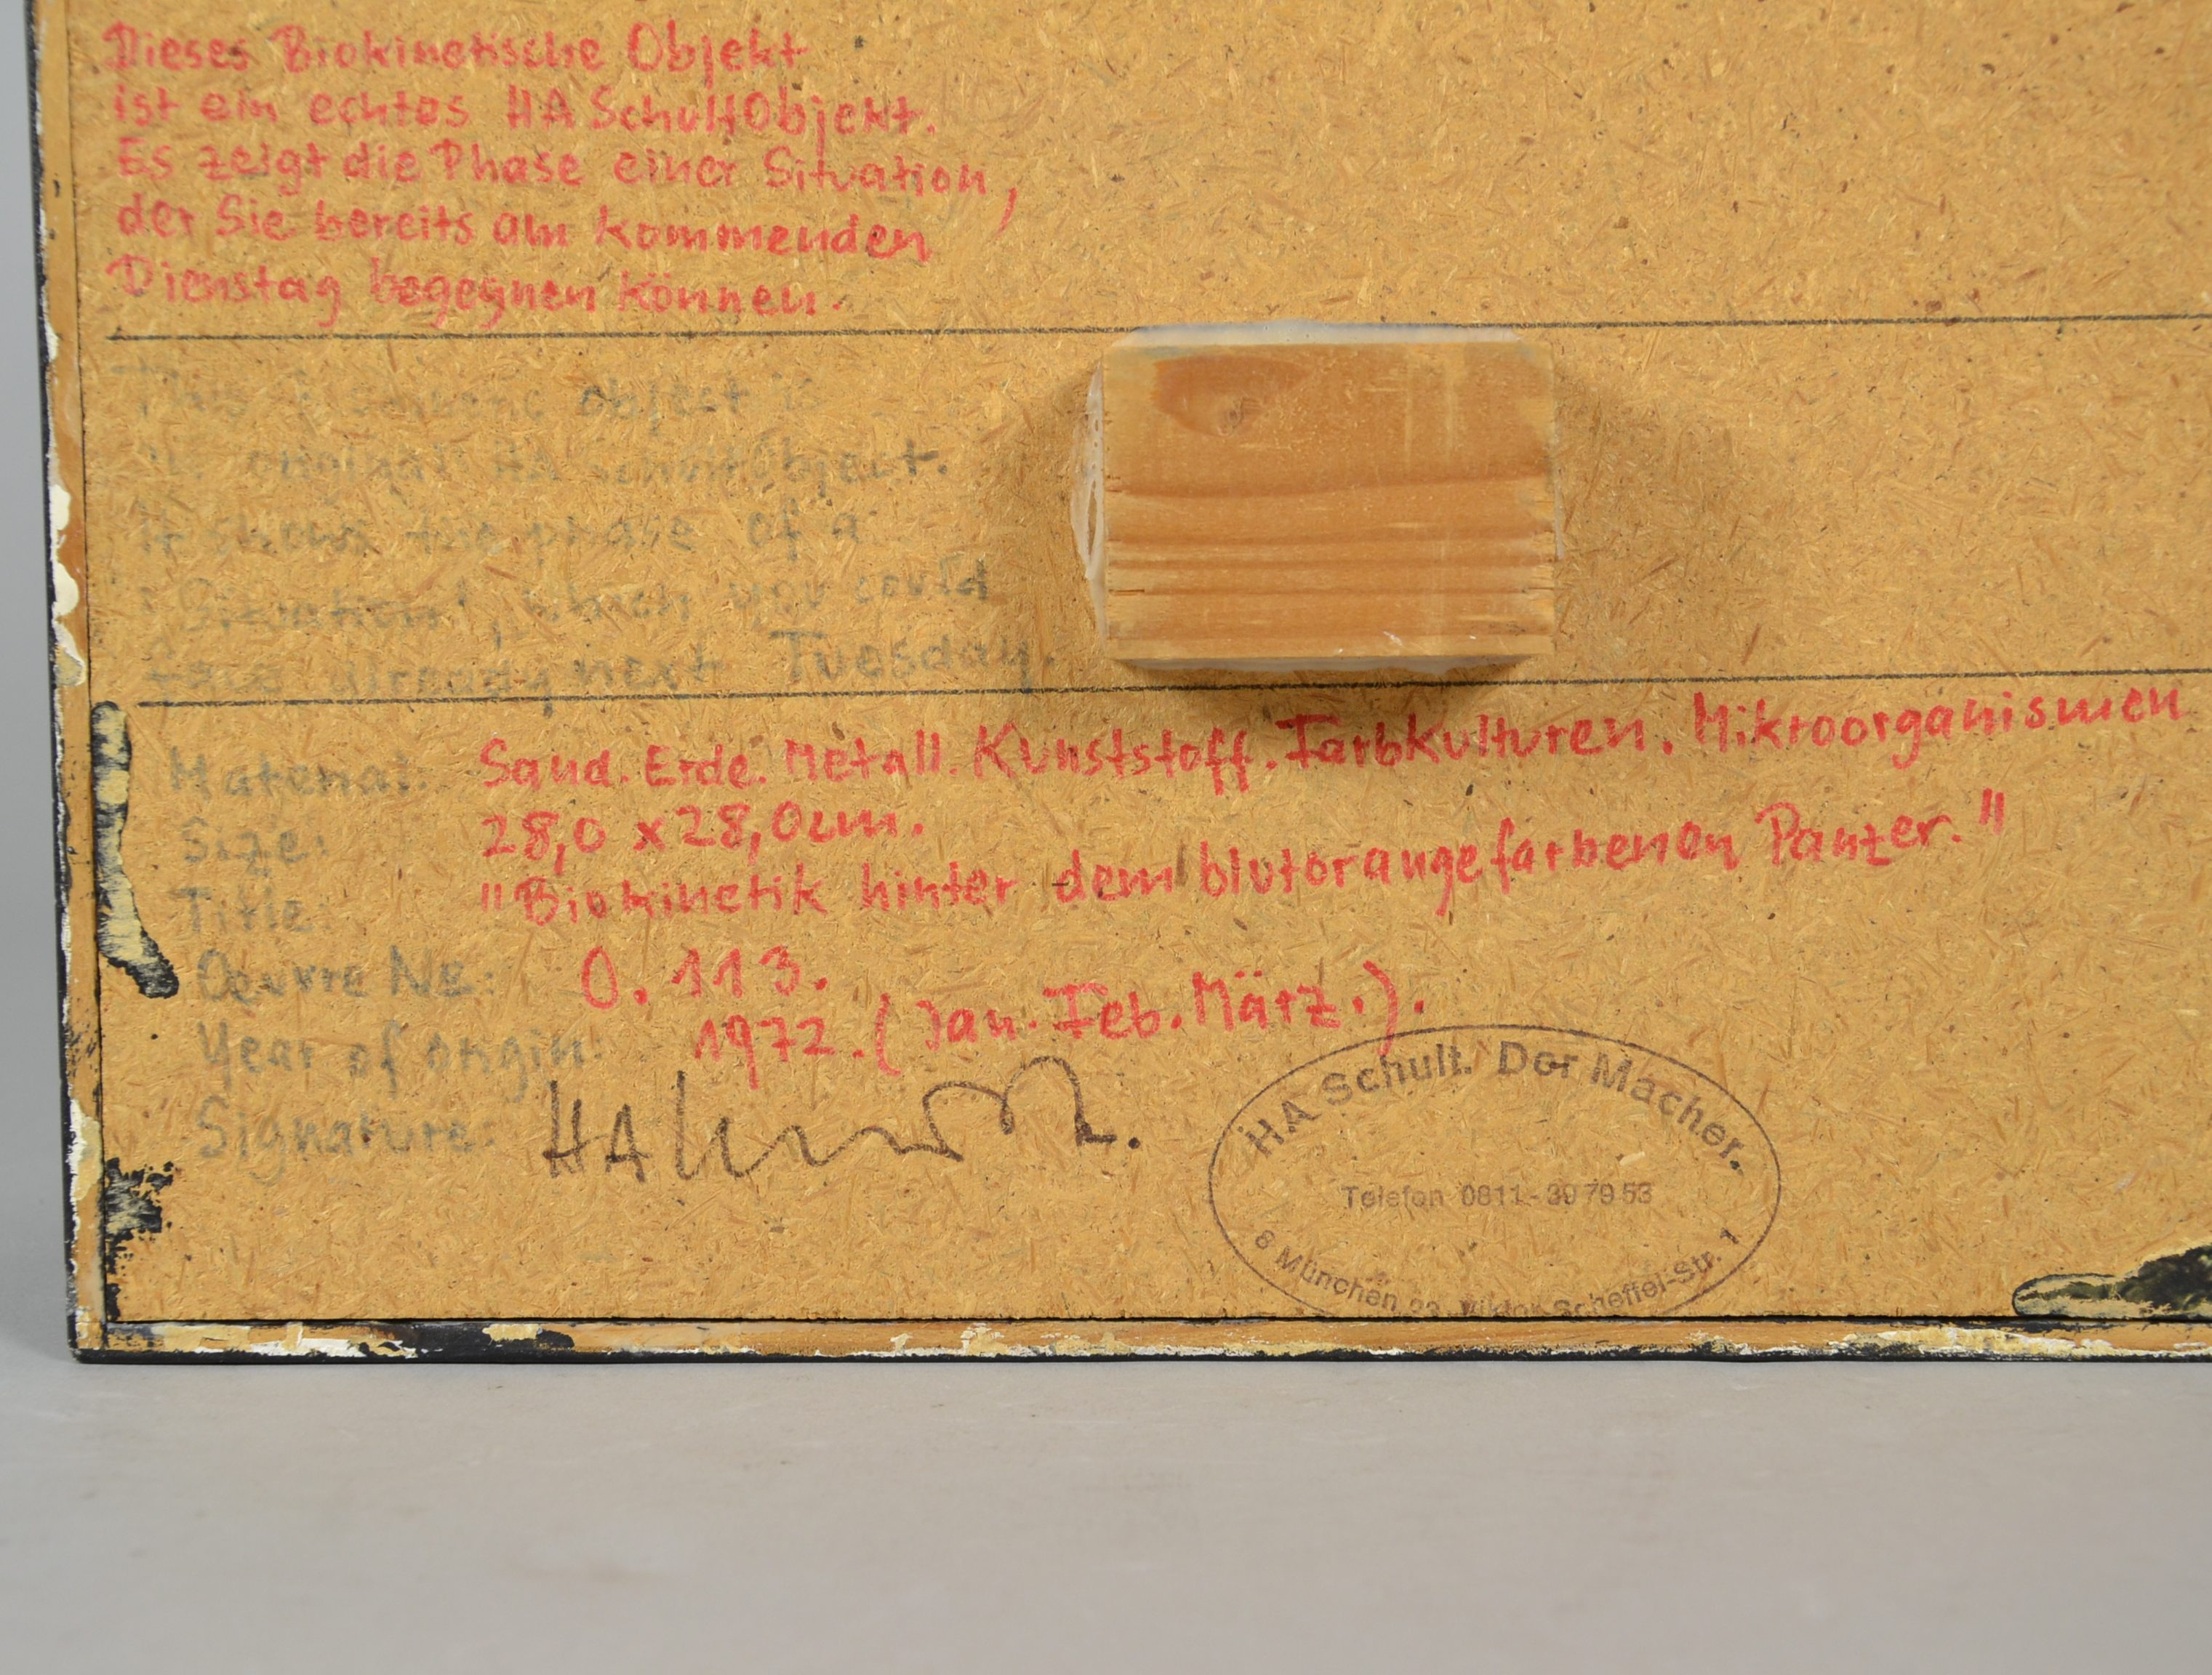 Dieses Biokinetische Objekt
ist ein echtes HA SchultObjekt.
Es zeigt die Phase einer Situation,
der Sie bereits am kommenden
Dienstag begegnen können.
This object is
HA SchultObject.
It shows the phase of a
"Situation", which you could
face already next Tuesday.
Material: Sand. Erde. Metall. Kunststoff. Farbkulturen. Mikroorganismen
Size: 28,0 x 28,0cm.
Title: "Biokinetik hinter dem blutorangefarbenen Panzer."
Oeuvre No: O. 113.
Year of origin: 1972. (Jan. Feb. März.).
Signature: HA Schult.
HA Schult. Der Macher.
Telefon 0811-39 79 53
8 München 23, Viktor-Scheffel-Str. 1